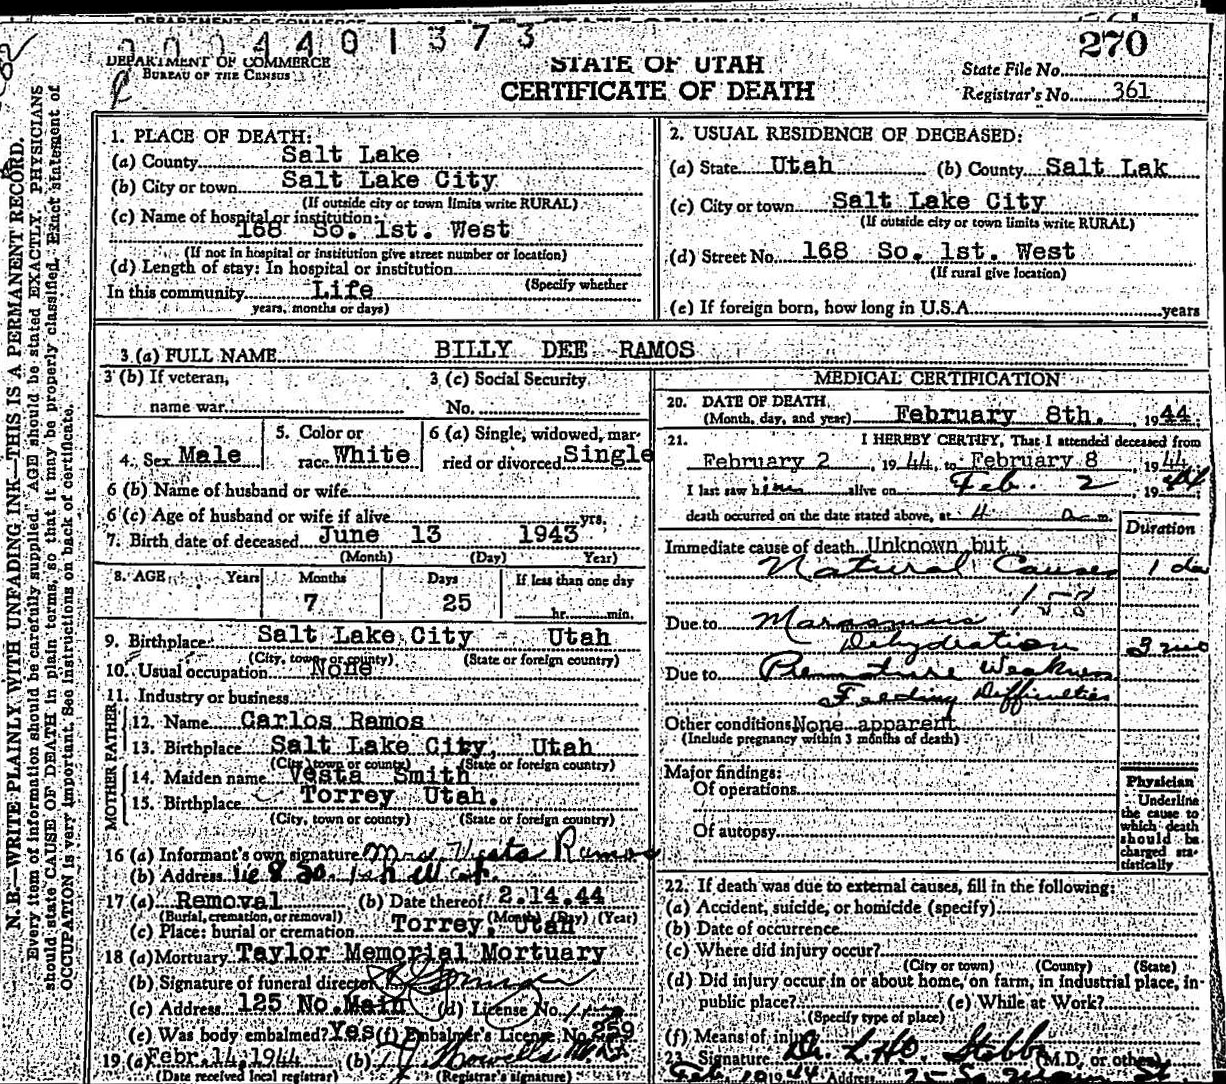 DEPARTMENT OF COMMERCE
0004401373
DEPARTMENT OF COMMERCE
BUREAU OF THE CENSUS
STATE OF UTAH
CERTIFICATE OF DEATH
270
State File No.
Registrar's No. 361
N. B.—WRITE PLAINLY WITH UNFADING INK—THIS IS A PERMANENT RECORD.
Every item of information should be carefully supplied. AGE should be stated EXACTLY. PHYSICIANS
should state CAUSE OF DEATH in plain terms, so that it may be properly classified. Exact statement of
OCCUPATION is very important. See instructions on back of certificate.
1. PLACE OF DEATH:
(a) County Salt Lake
(b) City or town Salt Lake City
(If outside city or town limits write RURAL)
(c) Name of hospital or institution:
168 So. 1st. West
(If not in hospital or institution give street number or location)
(d) Length of stay: In hospital or institution
(Specify whether
In this community Life
years, months or days)
2. USUAL RESIDENCE OF DECEASED:
(a) State Utah (b) County Salt Lak
(c) City or town Salt Lake City
(If outside city or town limits write RURAL)
(d) Street No. 168 So. 1st. West
(If rural give location)
(e) If foreign born, how long in U.S.A. years
3 (a) FULL NAME BILLY DEE RAMOS
3 (b) If veteran, 3 (c) Social Security
name war No.
4. Sex Male 5. Color or race White 6 (a) Single, widowed, married or divorced Single
6 (b) Name of husband or wife
6 (c) Age of husband or wife if alive yrs.
7. Birth date of deceased June 13 1943
(Month) (Day) Year)
8. AGE Years Months Days If less than one day
7 25 hr. min.
9. Birthplace Salt Lake City - Utah
(City, town or county) (State or foreign country)
10. Usual occupation None
11. Industry or business
FATHER
12. Name Carlos Ramos
13. Birthplace Salt Lake City, Utah
(City, town or county) (State or foreign country)
MOTHER
14. Maiden name Vesta Smith
15. Birthplace Torrey Utah.
(City, town or county) (State or foreign country)
16 (a) Informant's own signature Mrs. Vesta Ramos
(b) Address 168 So. 1st W
17 (a) Removal (b) Date thereof 2.14.44
(Burial, cremation, or removal) (Month) (Day) (Year)
(c) Place: burial or cremation Torrey, Utah
18 (a) Mortuary Taylor Memorial Mortuary
(b) Signature of funeral director
(c) Address 125 No. Main (d) License No.
(e) Was body embalmed? Yes (f) Embalmer's License No. 259
19 (a) Febr. 14, 1944 (b)
(Date received local registrar) (Registrar's signature)
MEDICAL CERTIFICATION
20. DATE OF DEATH
(Month, day, and year) February 8th. , 1944
21. I HEREBY CERTIFY, That I attended deceased from
February 2 , 1944, to February 8 , 1944
I last saw him alive on Feb. 2 , 1944
death occurred on the date stated above, at 4 a m.
Duration
Immediate cause of death Unknown but
Natural Causes 1 da
158
Due to Marasmus
Dehydration 3 mo
Due to Premature Weakness
Feeding Difficulties
Other conditions None apparent
(Include pregnancy within 3 months of death)
Major findings:
Of operations
Of autopsy
Physician
Underline
the cause to
which death
should be
charged sta-
tistically
22. If death was due to external causes, fill in the following:
(a) Accident, suicide, or homicide (specify)
(b) Date of occurrence
(c) Where did injury occur?
(City or town) (County) (State)
(d) Did injury occur in or about home, on farm, in industrial place, in
public place? (e) While at Work?
(Specify type of place)
(f) Means of injury
23. Signature Dr. L H O Stobbe (M.D. or other)
Feb 10 1944 Address